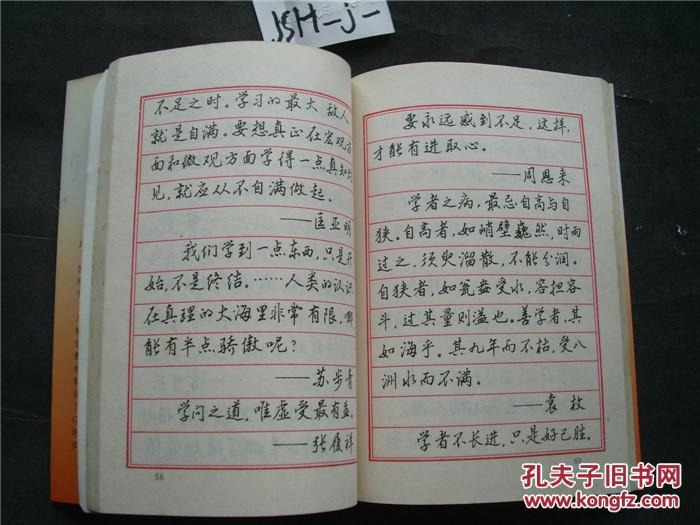 JSH-j-
不足之时。学习的最大敌人
就是自满。要想真正在宏观方
面和微观方面学得一点真知灼
见,就应从不自满做起。
——匡亚明
我们学到一点东西,只是开
始,不是终结。……人类的认识
在真理的大海里非常有限,哪
能有半点骄傲呢?
——苏步青
学问之道,唯虚受最有益。
——张履祥
68
要永远感到不足,这样,
才能有进取心。
——周恩来
学者之病,最忌自高与自
狭。自高者,如峭壁巍然,时雨
过之,须臾溜散,不能分润。
自狭者,如瓮盎受水,容担容
斗,过其量则溢也。善学者,其
如海乎。其九年而不枯,受八
洲水而不满。
——袁枚
学者不长进,只是好己胜。
69
孔夫子旧书网
www.kongfz.com